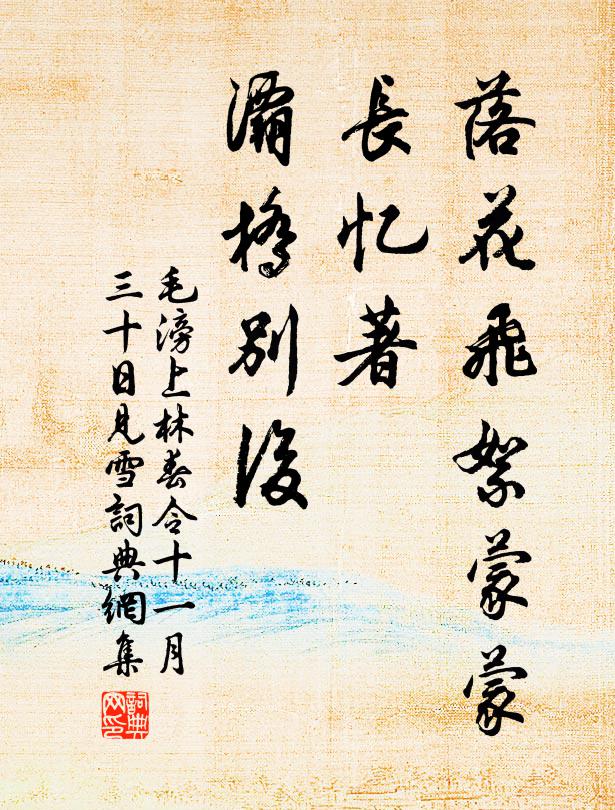 落花飛絮蒙蒙
長忆著
灞橋別後
毛滂上林春令十一月
三十日見雪詞典網集
詞典
网印